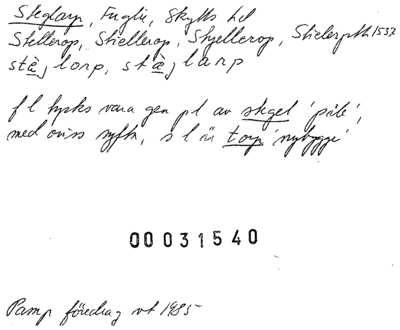 Steglarp, Fuglie, Skytts hd
Stellerop, Stiellerop, Skyellerop, Stielerpth 1532
stè̱j lorp, stà̱j larp
f l tycks vara gen pl av stegel 'påle',
med oviss syftn, s l är torp 'nybygge'
00031540
Pamp föredrag vt 1985